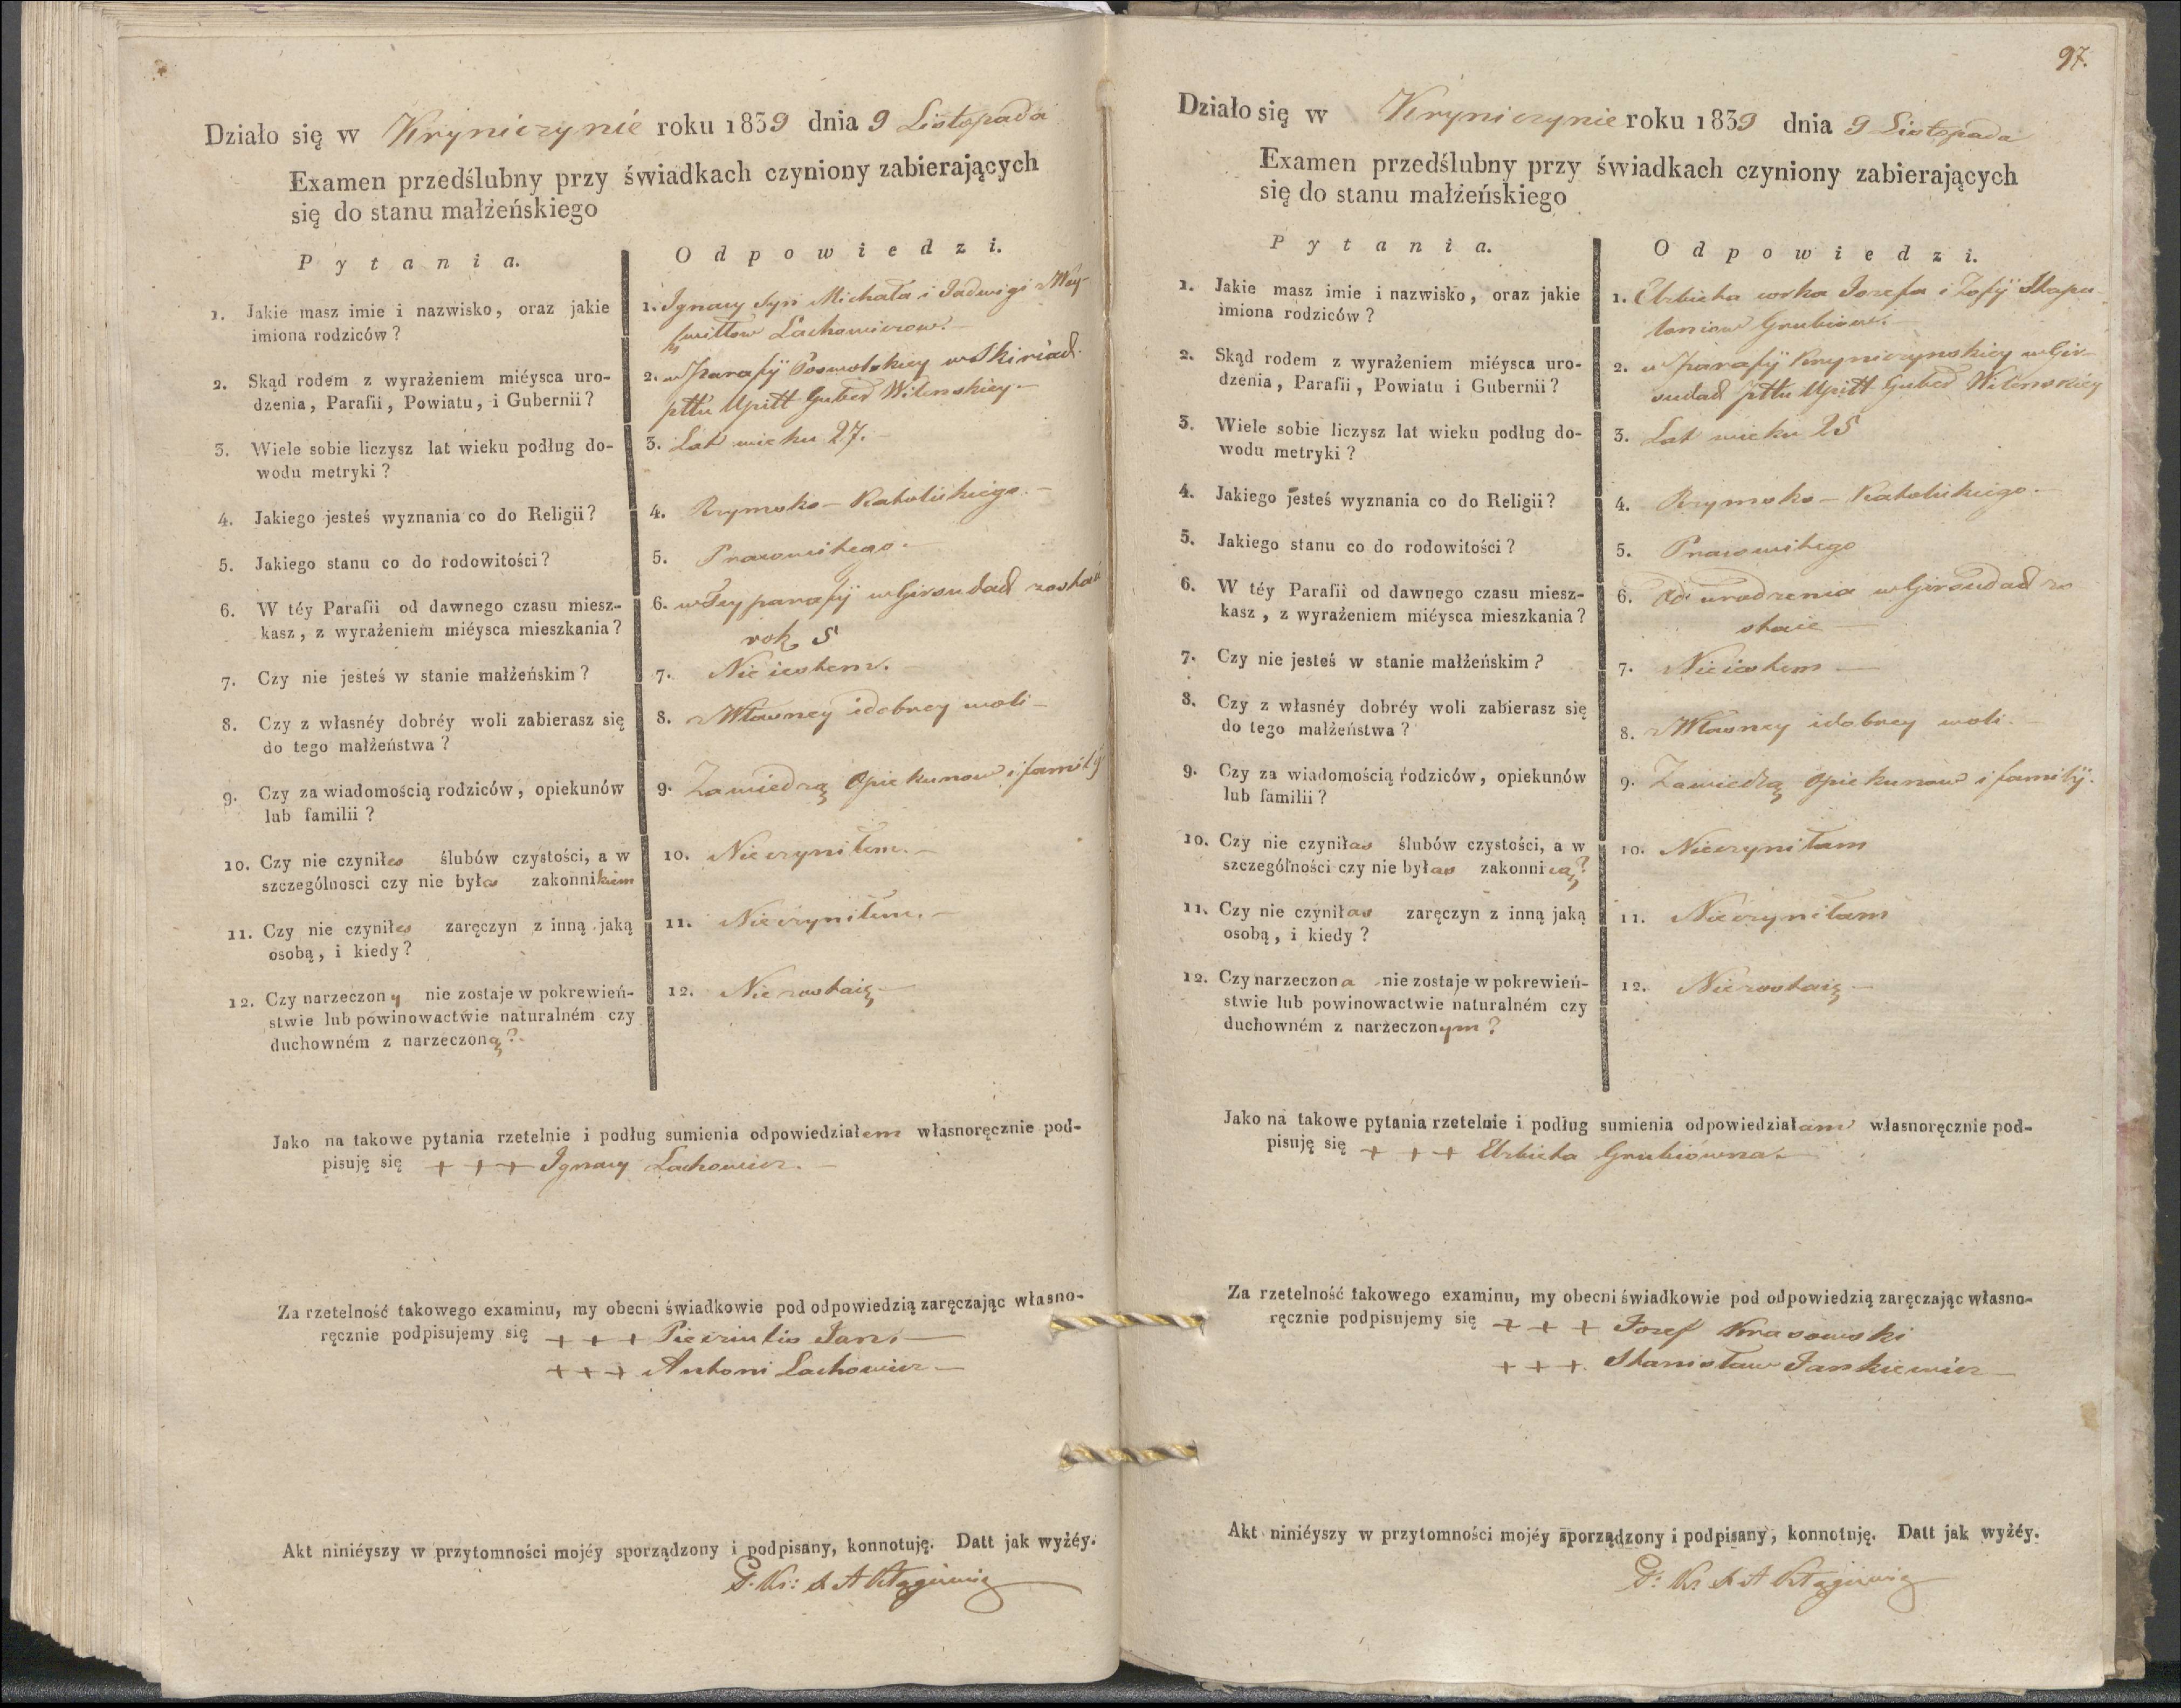 Działo się w Kryniczynie roku 1839 dnia 9 Listopada
Examen przedślubny przy świadkach czyniony zabierających
się do stanu małżeńskiego
Pytania. Odpowiedzi.
1. Jakie masz imie i nazwisko, oraz jakie
imiona rodziców?
1. Ignacy Syn Michała i Jadwigi
Lachowiczow.
2. Skąd rodem z wyrażeniem miéysca uro-
dzenia, Parafii, Powiatu, i Gubernii?
2. w parafij w Skiriad.
pttu Upitt Guber Wilenskiey.
3. Wiele sobie liczysz lat wieku podług do-
wodu metryki?
3. Lat wieku 27.
4. Jakiego jesteś wyznania co do Religii?
4. Rzymsko-Katolickiego.
5. Jakiego stanu co do rodowitości?
5. Prawowitego.
6. W téy Parafii od dawnego czasu miesz-
kasz, z wyrażeniem miéysca mieszkania?
6. w Tey parafij w Girsudad
rok 5
7. Czy nie jesteś w stanie małżeńskim?
7. Nie iestem.
8. Czy z własnéy dobréy woli zabierasz się
do tego małżeństwa?
8. z Własney i dobrey woli
9. Czy za wiadomością rodziców, opiekunów
lub familii?
9. Zawiedzą Opiekunow i familij
10. Czy nie czyniłes ślubów czystości, a w
szczególnosci czy nie byłes zakonnikiem
10. Nieczyniłem.
11. Czy nie czyniłes zaręczyn z inną jaką
osobą, i kiedy?
11. Nieczyniłem.
12. Czy narzeczony nie zostaje w pokrewień-
stwie lub powinowactwie naturalném czy
duchowném z narzeczoną?
12. Niezostaię
Jako na takowe pytania rzetelnie i podług sumienia odpowiedziałem własnoręcznie pod-
pisuję się + + + Ignacy Lachowicz.
Za rzetelność takowego examinu, my obecni świadkowie pod odpowiedzią zaręczając własno-
ręcznie podpisujemy się + + + Jani
+ + + Antoni Lachowicz
Akt niniéyszy w przytomności mojéy sporządzony i podpisany, konnotuję. Datt jak wyżéy.
97.
Działo się w Kryniczynie roku 1839 dnia 9 Listopada
Examen przedślubny przy świadkach czyniony zabierających
się do stanu małżeńskiego
Pytania. Odpowiedzi.
1. Jakie masz imie i nazwisko, oraz jakie
imiona rodziców?
1. Elzbieta corka Jozefa i Zofij
Grubiow.
2. Skąd rodem z wyrażeniem miéysca uro-
dzenia, Parafii, Powiatu i Gubernii?
2. w parafij Kryniczynskiey w Gir-
sudad pttu Upitt Guber Wilenskiey
3. Wiele sobie liczysz lat wieku podług do-
wodu metryki?
3. Lat wieku 25
4. Jakiego jesteś wyznania co do Religii?
4. Rzymsko-Katolickiego.
5. Jakiego stanu co do rodowitości?
5. Prawowitego
6. W téy Parafii od dawnego czasu miesz-
kasz, z wyrażeniem miéysca mieszkania?
6. Od urodzenia w Girsudad zo
staie
7. Czy nie jesteś w stanie małżeńskim?
7. Nieiestem
8. Czy z własnéy dobréy woli zabierasz się
do tego małżeństwa?
8. z Własney i dobrey woli
9. Czy za wiadomością rodziców, opiekunów
lub familii?
9. Zawiedzą Opiekunow i familij.
10. Czy nie czyniłas ślubów czystości, a w
szczególności czy nie byłas zakonnicą?
10. Nieczyniłam
11. Czy nie czyniłas zaręczyn z inną jaką
osobą, i kiedy?
11. Nieczyniłam
12. Czy narzeczona nie zostaje w pokrewień-
stwie lub powinowactwie naturalném czy
duchowném z narzeczonym?
12. Niezostaię
Jako na takowe pytania rzetelnie i podług sumienia odpowiedziałam własnoręcznie pod-
pisuję się + + + Elzbieta Grubiowna.
Za rzetelność takowego examinu, my obecni świadkowie pod odpowiedzią zaręczając własno-
ręcznie podpisujemy się + + + Jozef Krasowski
+ + + Stanisław Jankiewicz
Akt niniéyszy w przytomności mojéy sporządzony i podpisany, konnotuję. Datt jak wyżéy.